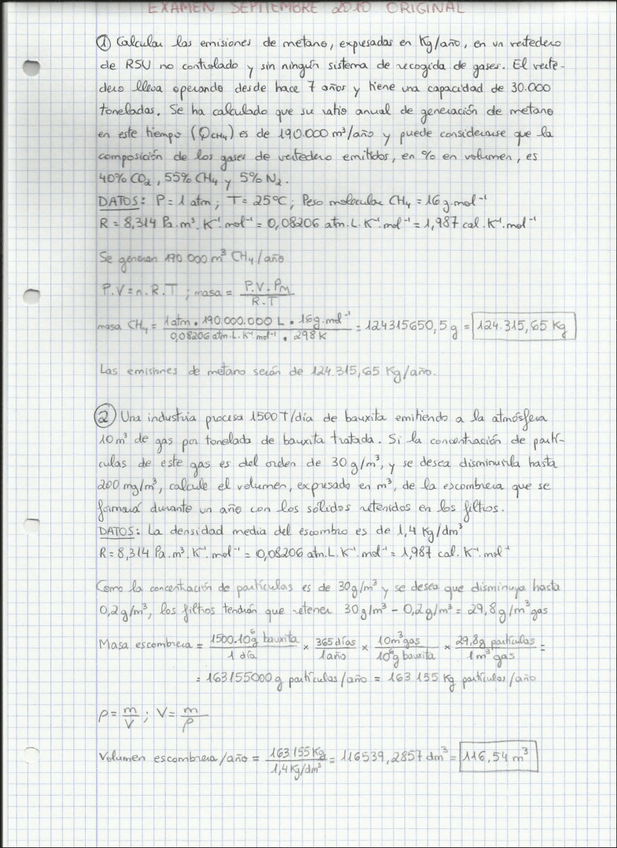 EXAMEN SEPTIEMBRE 2010 ORIGINAL
① Calcular las emisiones de metano, expresadas en Kg/año, en un vertedero
de RSU no controlado y sin ningún sistema de recogida de gases. El verte-
dero lleva operando desde hace 7 años y tiene una capacidad de 30.000
toneladas. Se ha calculado que su ratio anual de generación de metano
en este tiempo (Q_CH₄) es de 190.000 m³/año y puede considerarse que la
composición de los gases de vertedero emitidos, en % en volumen, es
40% CO₂, 55% CH₄ y 5% N₂.
DATOS: P = 1 atm; T = 25ºC; Peso molecular CH₄ = 16 g.mol⁻¹
R = 8,314 Pa.m³.K⁻¹.mol⁻¹ = 0,08206 atm.L.K⁻¹.mol⁻¹ = 1,987 cal.K⁻¹.mol⁻¹
Se generan 190 000 m³ CH₄/año
P.V = n.R.T ; masa = P.V.PM / R.T
masa CH₄ = 1 atm . 190.000.000 L . 16 g.mol⁻¹ / 0,08206 atm.L.K⁻¹ mol⁻¹ . 298 K = 124315650,5 g = 124.315,65 Kg
Las emisiones de metano serán de 124.315,65 Kg/año.
② Una industria procesa 1500 T/día de bauxita emitiendo a la atmósfera
10 m³ de gas por tonelada de bauxita tratada. Si la concentración de partí-
culas de este gas es del orden de 30 g/m³, y se desea disminuirla hasta
200 mg/m³, calcule el volumen, expresado en m³, de la escombrera que se
formará durante un año con los sólidos retenidos en los filtros.
DATOS: La densidad media del escombro es de 1,4 Kg/dm³
R = 8,314 Pa.m³.K⁻¹.mol⁻¹ = 0,08206 atm.L.K⁻¹.mol⁻¹ = 1,987 cal.K⁻¹.mol⁻¹
Como la concentración de partículas es de 30 g/m³ y se desea que disminuya hasta
0,2 g/m³, los filtros tendrán que retener 30 g/m³ - 0,2 g/m³ = 29,8 g/m³ gas
Masa escombrera = 1500.10⁶ g bauxita / 1 día × 365 días / 1 año × 10 m³ gas / 10⁶ g bauxita × 29,8 g partículas / 1 m³ gas =
= 163155000 g partículas/año = 163 155 Kg partículas/año
ρ = m/V ; V = m/ρ
Volumen escombrera/año = 163155 Kg / 1,4 Kg/dm³ = 116539,2857 dm³ = 116,54 m³